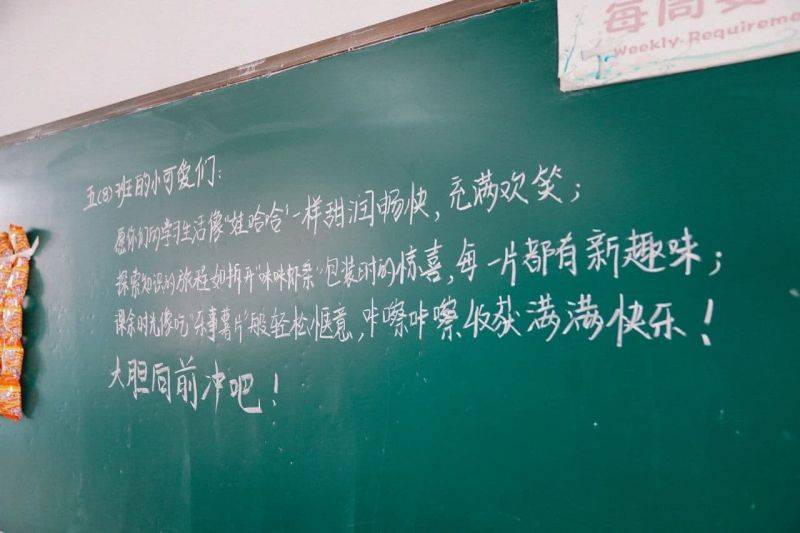 每周要
Weekly Requireme
五(8)班的小可爱们:
愿你们的学习生活像"娃哈哈"一样甜润畅快,充满欢笑;
探索知识的旅程如拆开"咪咪虾条"包装时的惊喜,每一片都有新趣味;
课余时光像吃"乐事薯片"般轻松惬意,咔嚓咔嚓收获满满快乐!
大胆向前冲吧!